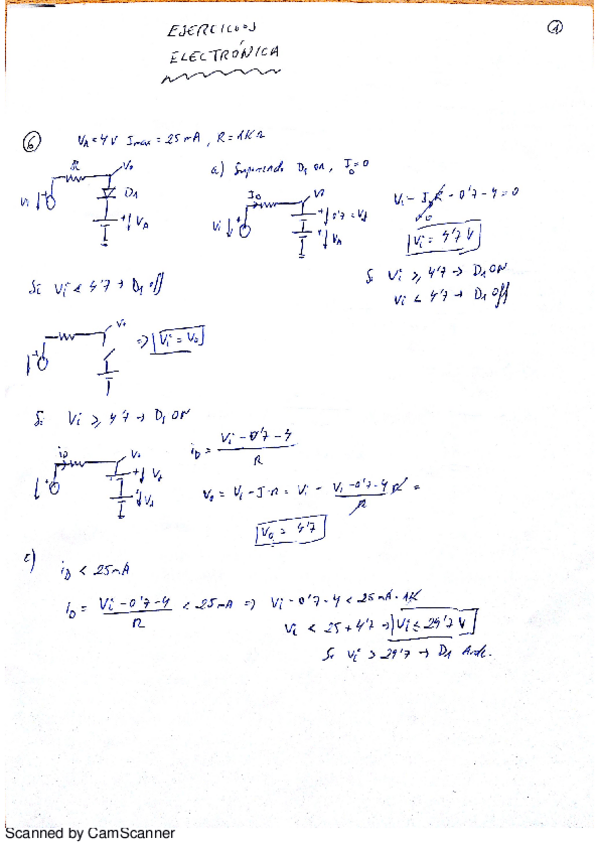 EJERCICIOS
ELECTRÓNICA
1
6 VA = 4V Imax = 25mA, R = 1KΩ
a) Suponiendo D1 on, I0 = 0
R V0
Vi D1
+ VA
I0 V0
Vi + 0'7 = Vd
+ VA
Vi - I0 R - 0'7 - 4 = 0
0
Vi = 4'7 V
Si Vi ≥ 4'7 → D1 ON
Vi < 4'7 → D1 off
Si Vi < 4'7 → D1 off
V0
⇒ Vi = V0
Si Vi ≥ 4'7 → D1 ON
iD V0
+ Vd
+ VA
iD = (Vi - 0'7 - 4) / R
V0 = Vi - I·R = Vi - (Vi - 0'7 - 4)/R R =
V0 = 4'7
c) iD < 25mA
iD = (Vi - 0'7 - 4)/R < 25mA ⇒ Vi - 0'7 - 4 < 25mA·1K
Vi < 25 + 4'7 → Vi ≤ 29'7 V
Si Vi > 29'7 → D1 Arde.
Scanned by CamScanner